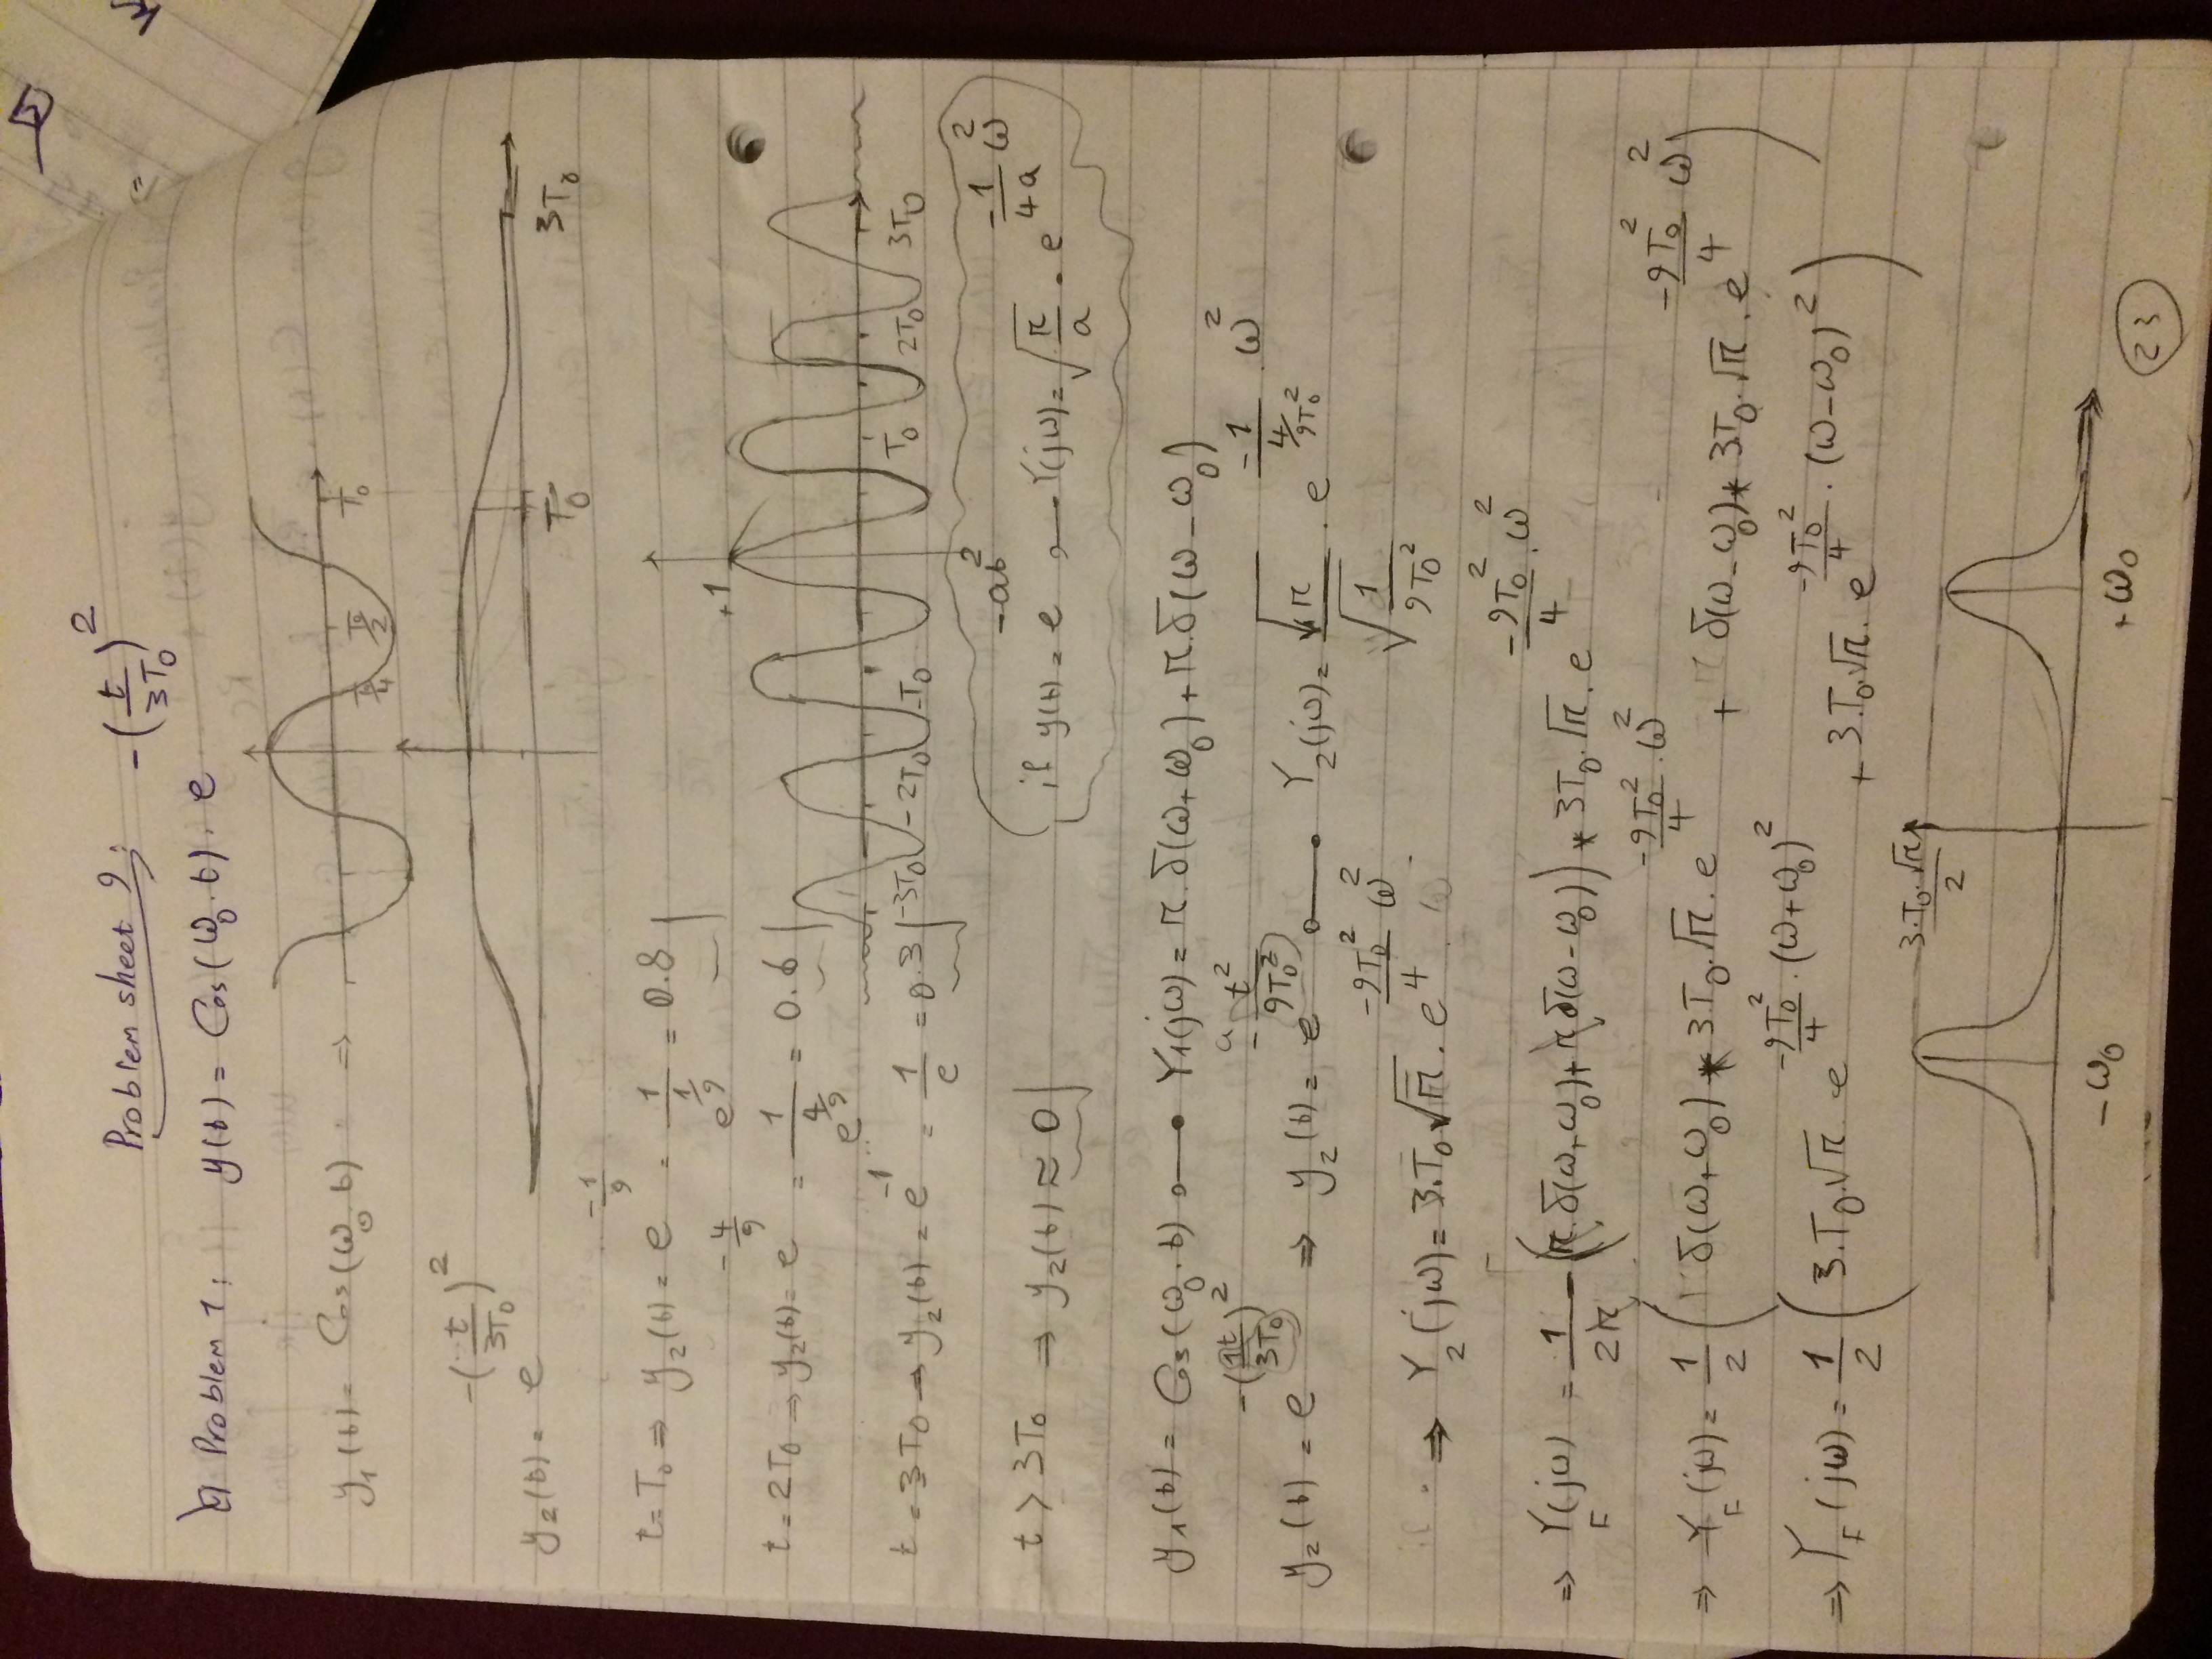 Problem sheet 9:
Problem 1: y(t) = Cos(ω₀.t). e^(-(t/3T₀)²)
y₁(t) = Cos(ω₀.t) ⇒
T₀/4 T₀/2 T₀
y₂(t) = e^(-(t/3T₀)²)
T₀ 3T₀
t = T₀ ⇒ y₂(t) = e^(-1/9) = 1/e^(1/9) = 0.8
+1
t = 2T₀ ⇒ y₂(t) = e^(-4/9) = 1/e^(4/9) = 0.6
t = 3T₀ ⇒ y₂(t) = e^(-1) = 1/e = 0.3
-3T₀ -2T₀ -T₀ T₀ 2T₀ 3T₀
t > 3T₀ ⇒ y₂(t) ≈ 0
if y(t) = e^(-at²) ○—● Y(jω) = √(π/a) . e^(-1/4a ω²)
y₁(t) = Cos(ω₀.t) ○—● Y₁(jω) = π.δ(ω+ω₀) + π.δ(ω-ω₀)
y₂(t) = e^(-(1t/3T₀)²) ⇒ y₂(t) = e^(-t²/9T₀²) ○—● Y₂(jω) = √π/√(1/9T₀²) . e^(-1/(4/9T₀²) . ω²)
a
⇒ Y₂(jω) = 3.T₀√π . e^(-9T₀²/4 ω²)
⇒ Y_F(jω) = 1/2π (π.δ(ω+ω₀) + π δ(ω-ω₀)) * 3T₀.√π . e^(-9T₀²/4 . ω²)
⇒ Y_F(jω) = 1/2 ( δ(ω+ω₀) * 3T₀.√π . e^(-9T₀²/4 . ω²) + δ(ω-ω₀) * 3T₀.√π . e^(-9T₀²/4 ω²) )
⇒ Y_F(jω) = 1/2 ( 3.T₀.√π e^(-9T₀²/4 . (ω+ω₀)²) + 3.T₀.√π . e^(-9T₀²/4 . (ω-ω₀)²) )
3.T₀.√π/2
-ω₀ +ω₀
23